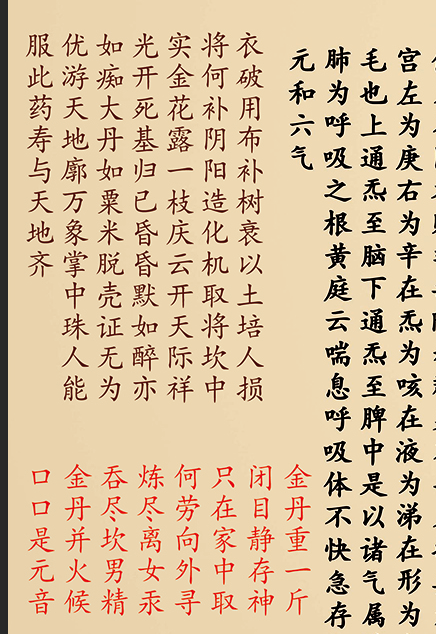 宫左为庚右为辛在炁为咳在液为涕在形为
毛也上通炁至脑下通炁至脾中是以诸气属
肺为呼吸之根黄庭云喘息呼吸体不快急存
元和六气
衣破用布补树衰以土培人损
将何补阴阳造化机取将坎中
实金花露一枝庆云开天际祥
光开死基归已昏昏默如醉亦
如痴大丹如粟米脱壳证无为
优游天地廓万象掌中珠人能
服此药寿与天地齐
金丹重一斤
闭目静存神
只在家中取
何劳向外寻
炼尽离女汞
吞尽坎男精
金丹并火候
口口是元音